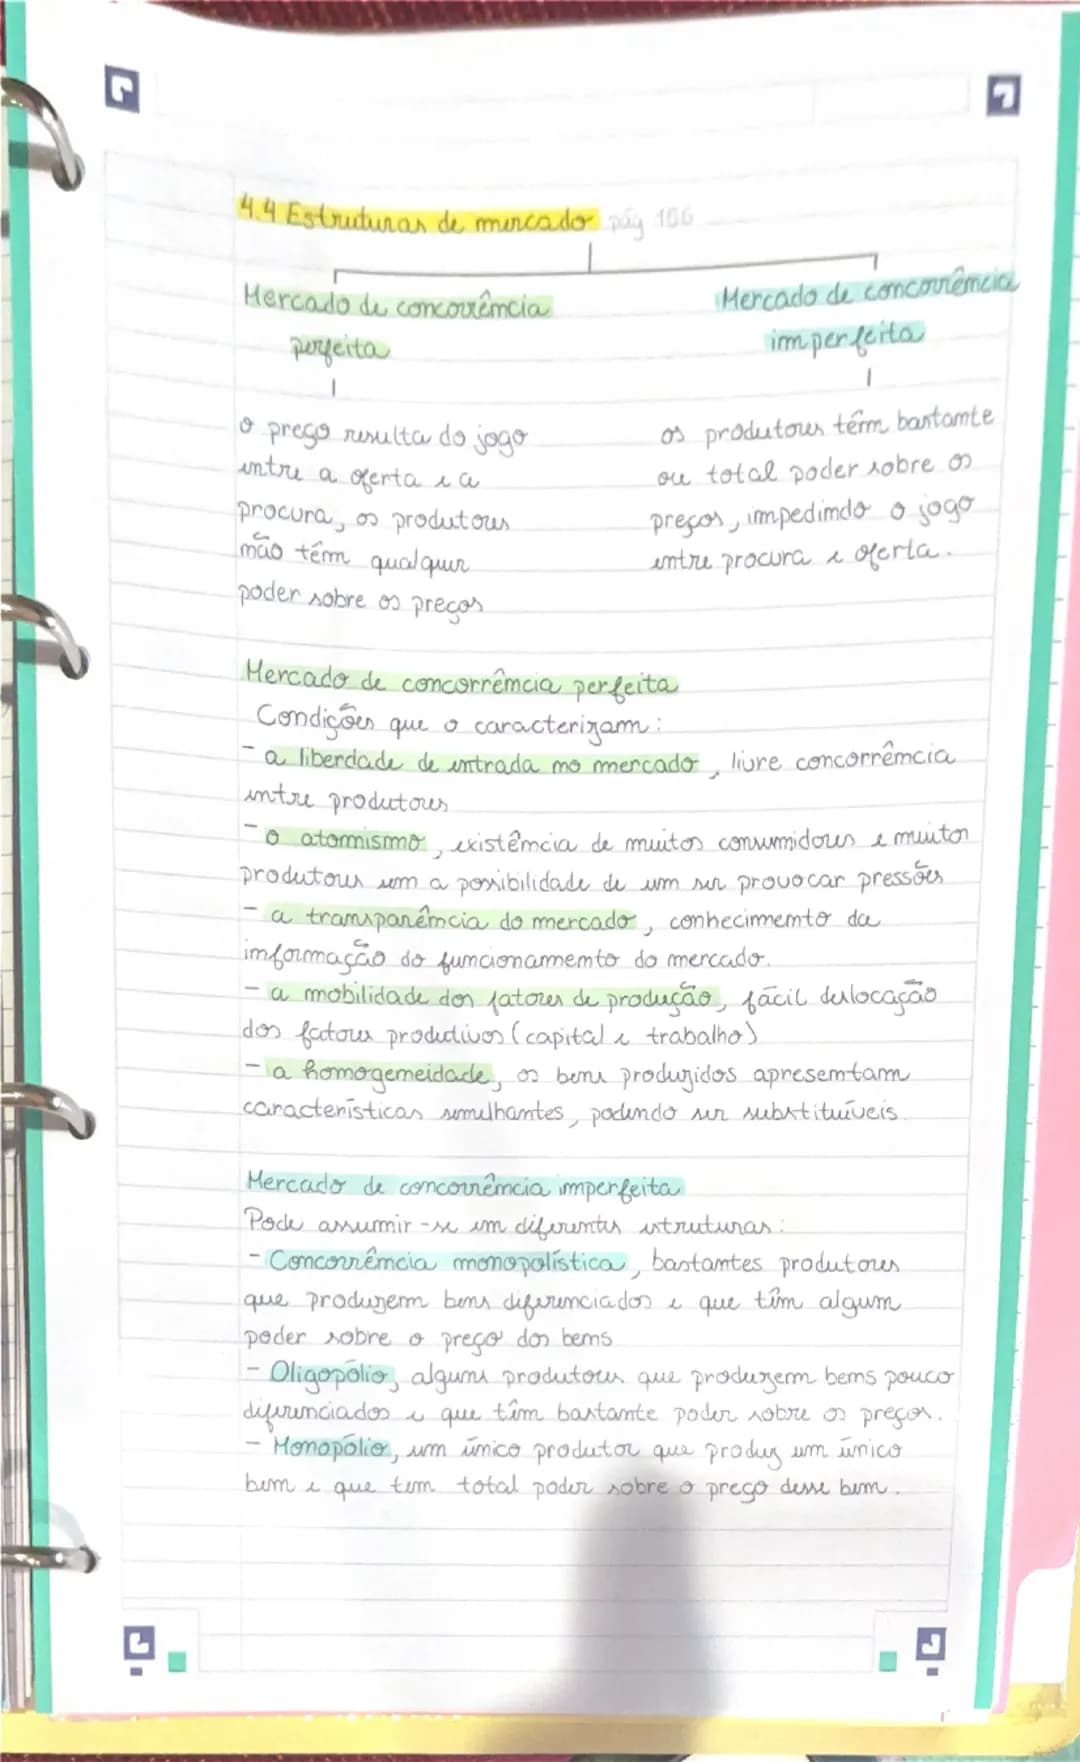 4.4 Estruturas de mercado pág 156
Mercado de concorrência
perfeita
Mercado de concorrência
imperfeita
o preço resulta do jogo
entre a oferta e a
procura, os produtores
não têm qualquer
poder sobre os preços
os produtores têm bastante
ou total poder sobre os
preços, impedindo o jogo
entre procura e oferta.
Mercado de concorrência perfeita
Condições que o caracterizam:
- a liberdade de entrada no mercado, livre concorrência
entre produtores
- o atomismo, existência de muitos consumidores e muitos
produtores sem a possibilidade de um ser provocar pressões
- a transparência do mercado, conhecimento da
informação do funcionamento do mercado.
- a mobilidade dos fatores de produção, fácil deslocação
dos fatores produtivos (capital e trabalho)
- a homogeneidade, os bens produzidos apresentam
características semelhantes, podendo ser substituíveis.
Mercado de concorrência imperfeita
Pode assumir-se em diferentes estruturas:
- Concorrência monopolística, bastantes produtores
que produzem bens diferenciados e que têm algum
poder sobre o preço dos bens
- Oligopólio, alguns produtores que produzem bens pouco
diferenciados e que têm bastante poder sobre os preços.
- Monopólio, um único produtor que produz um único
bem e que tem total poder sobre o preço desse bem.